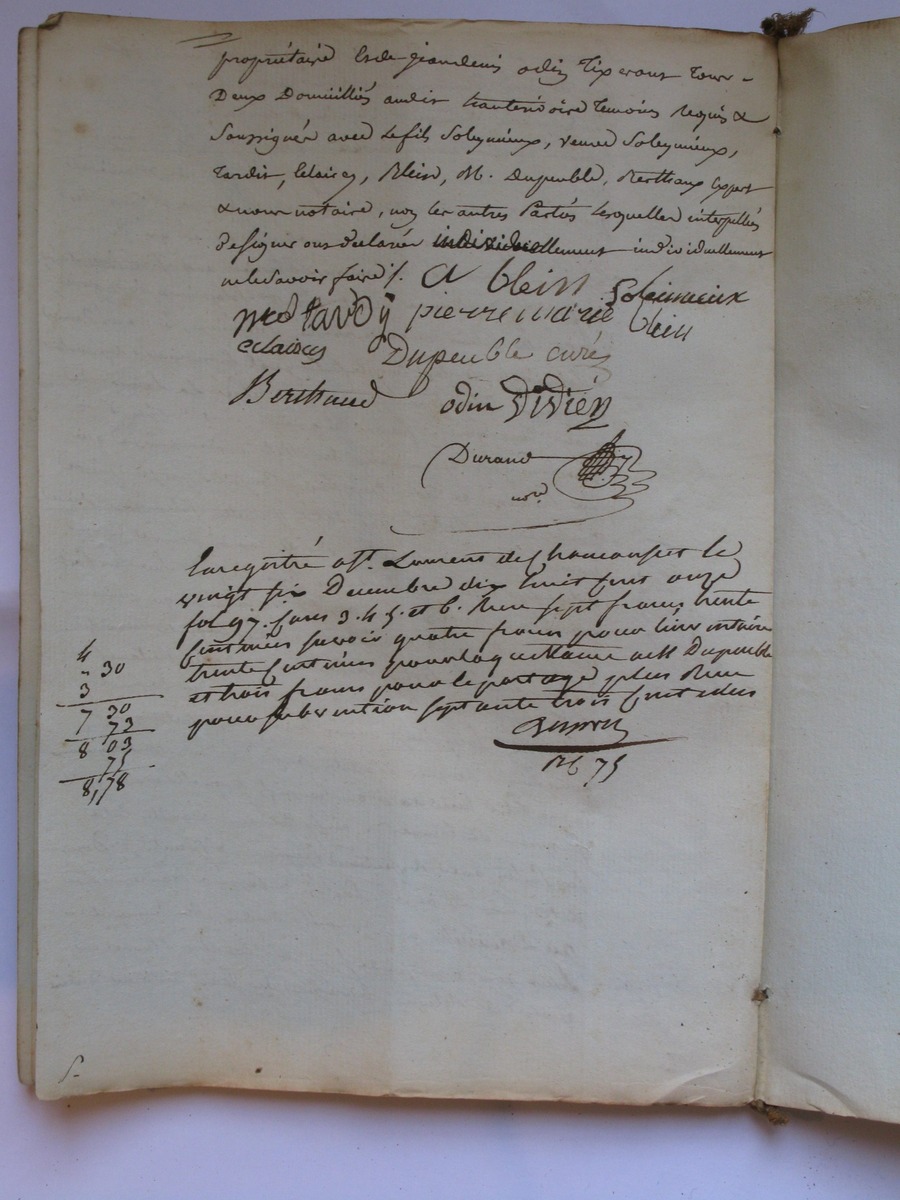 propriétaire et de jean denis odin Tixerant tous
Deux Domiciliés audit hauterivoire temoins requis &
Soussignés avec le fils Soleymieux, veuve Soleymieux,
tardit, Claircy, Blein, M. Dupeuble, Berthaux Expert
& nous notaire, non les autres Parties lesquelles interpellées
de signer ont déclaré individuellement individuellement
ne le savoir faire /.
a blein Soleimieux
pierre marie blein
Dupeuble curé
Berthaud odin Vivién
Durand
nore
Enregistré a St. Laurent de Chamousset le
vingt six Decembre dix huit cent onze
fol 97. cases 3. 4 5. et 6. Reçu sept francs trente
centimes savoir quatre francs pour linventaire
trente centimes pour lacquittance a M Dupeuble
et trois francs pour le partage plus Reçu
pour subvention septante trois centimes
Rth 75
4
" 30
3
7 30
73
8 03
75
8,78